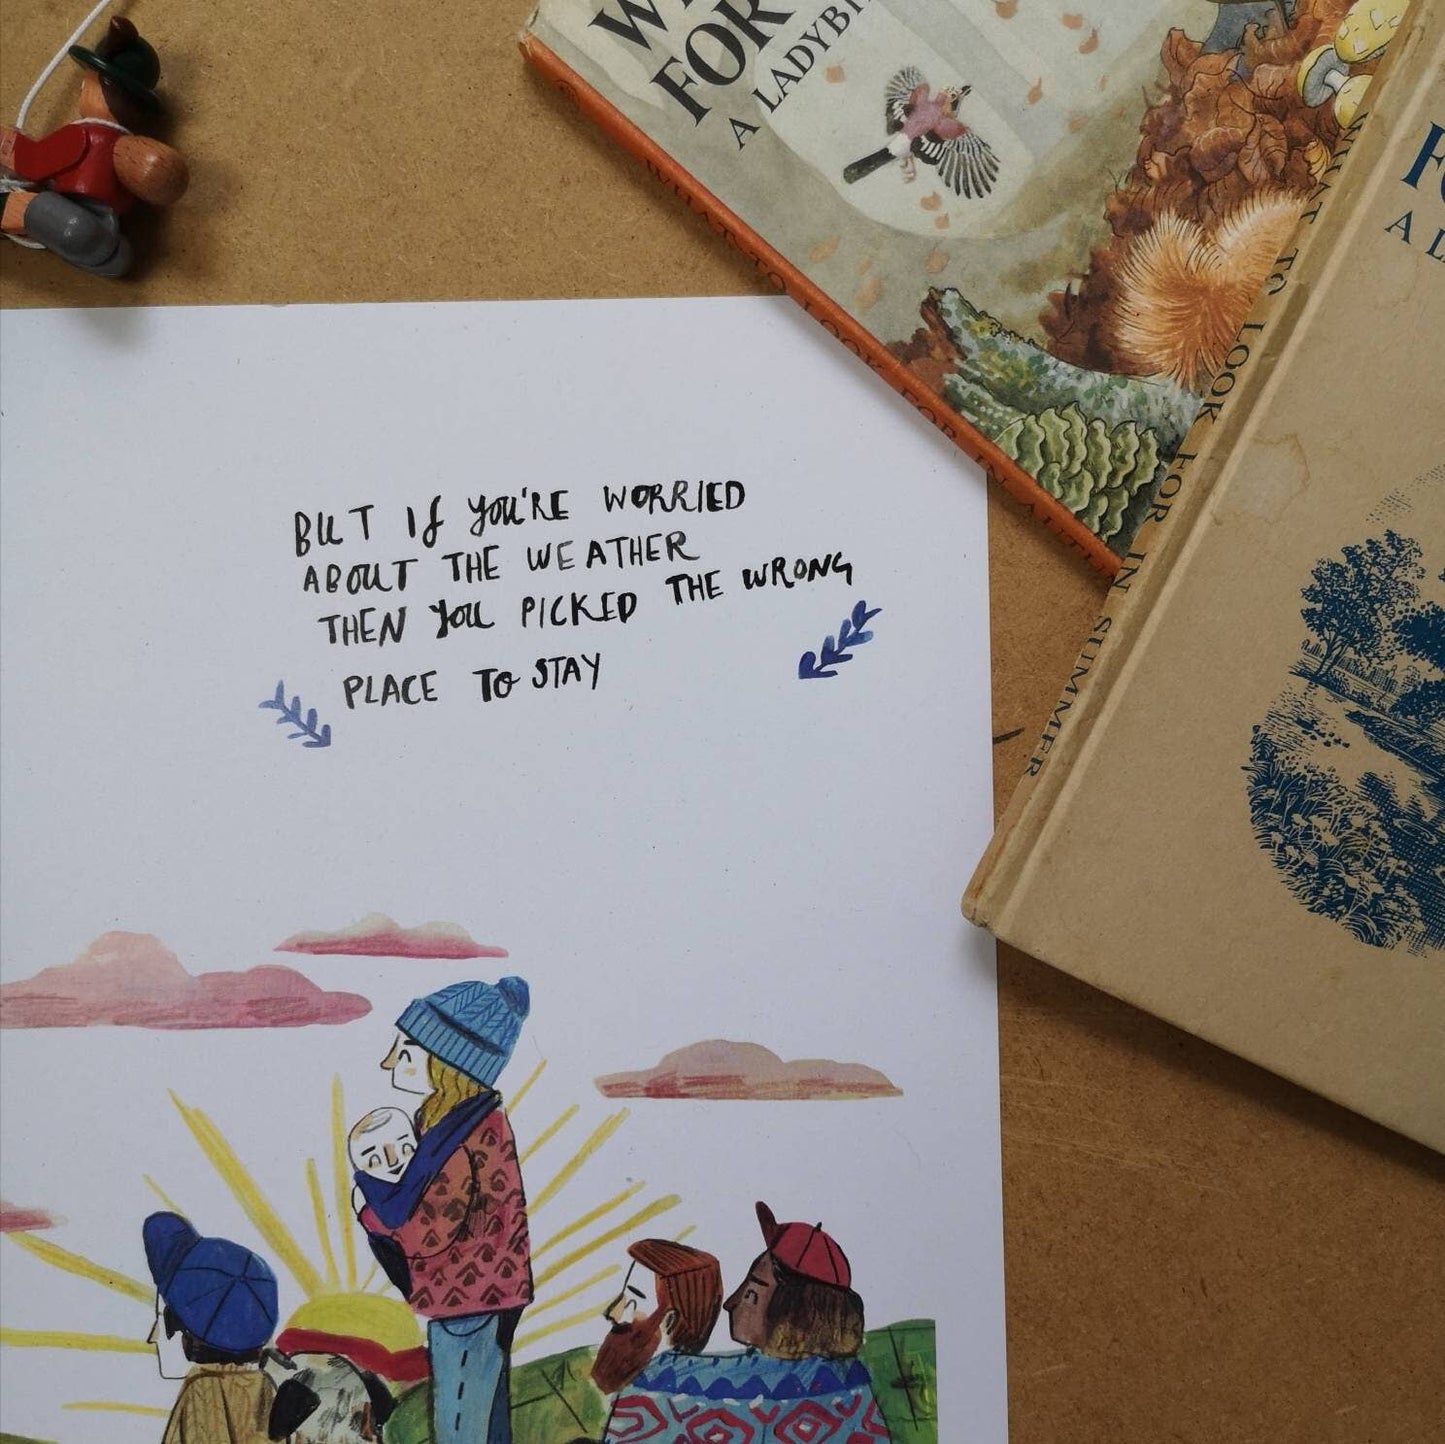 BUT IF YOU'RE WORRIED
ABOUT THE WEATHER
THEN YOU PICKED THE WRONG
PLACE TO STAY
FOR
A LADYBI
WHAT TO LOOK FOR IN
WHAT TO LOOK FOR IN SUMMER